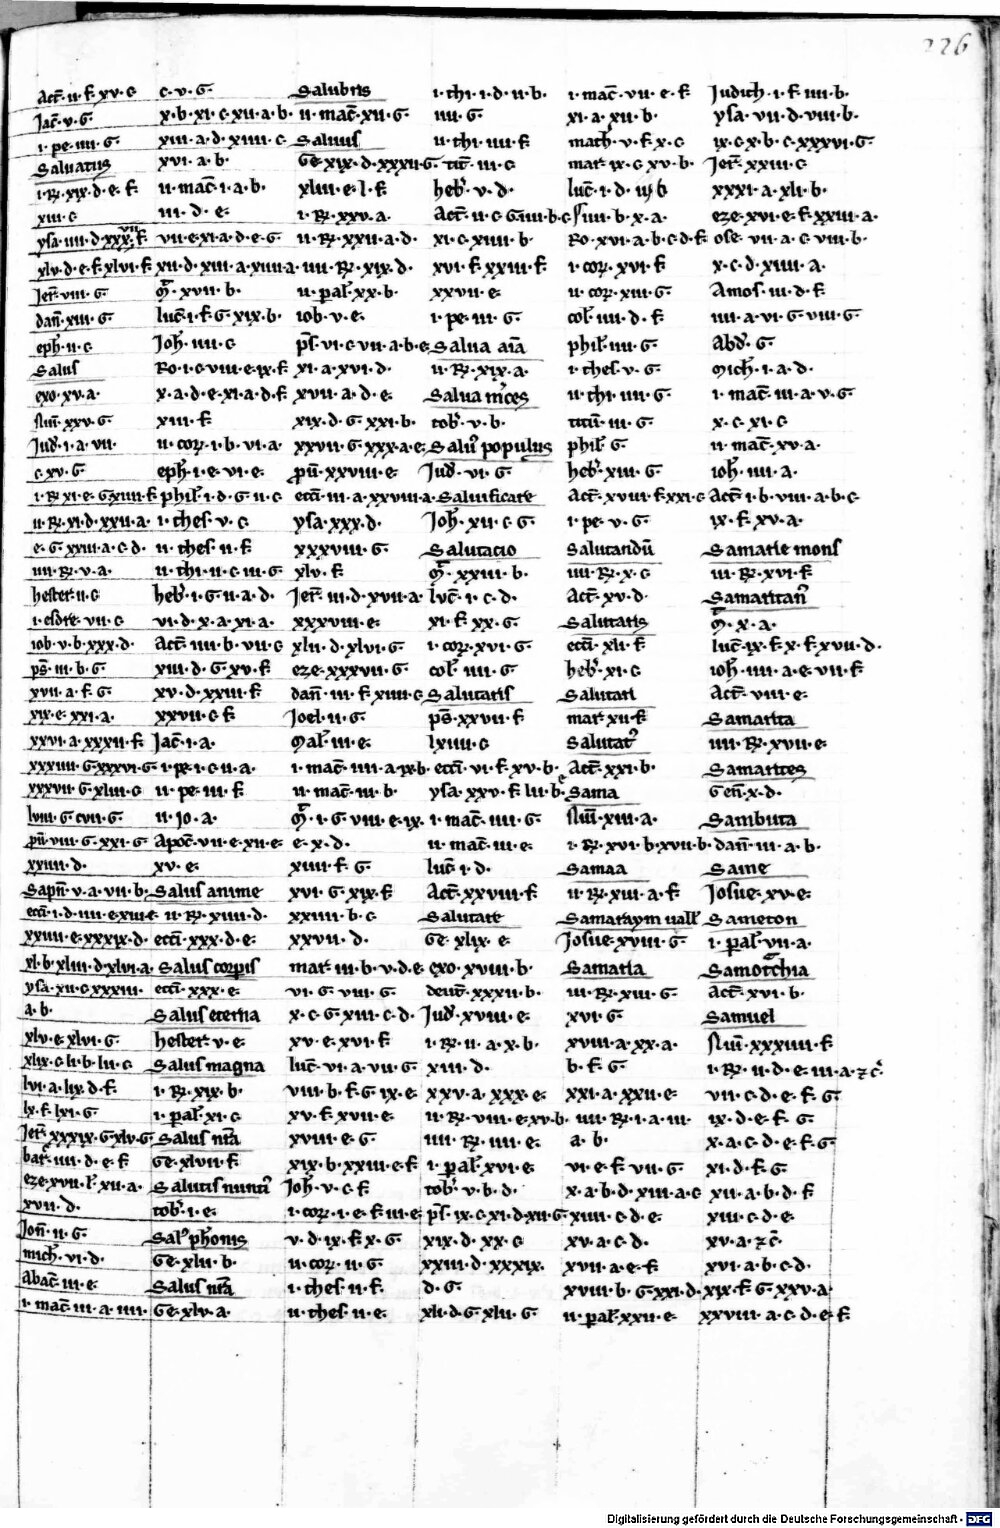 226
Act· ii· f· xv· c
Jac· v· G
i· pe· iiii· G
Saluatus
i· R· xix· d· e· f
xiii· c
ysa· iiii· d· xxx· f
xlv· d· e· f· xlvi· f
Jer· viii· G
dan· xiii· G
eph· ii· c
Salus
exo· xv· a·
num· xxv· G
Jud· i· a· vii·
c· xv· G
i· R· xi· e· G· xiiii· f
ii· R· xi· d· xxii· a·
e· G· xxiii· a· c· d·
iiii· R· v· a·
hester· ii· c
i· esdre· vii· c
iob· v· b· xxx· d·
ps· iii· b· G·
xvii· a· f· G
xix· e· xxi· a·
xxvi· a· xxxii· f
xxxiiii· G· xxxvi· G
xxxvii· G· xliii· c
lviii· G· cvii· G
pu· viii· G· xxi· G
xxiiii· d·
Sapn· v· a· vii· b·
ecci· i· d· iiii· e· xiii· e
xxiiii· e· xxxix· d·
xl· b· xliii· d· xlvi· a·
ysa· xii· c· xxxiii·
a· b·
xlv· e· xlvi· G
xlix· c· li· b· lii· c
lvi· a· lix· d· f
lx· f· lxi· G
Jer· xxxix· G· xlv· G
bar· iiii· d· e· f
eze· xvii· l· xii· a·
xvii· d·
Jon· ii· G
mich· vi· d·
Abac· iii· e
i· mac· iii· a· iiii·
c· v· G
x· b· xi· c· xii· a· b·
xiii· a· d· xiiii· c
xvi· a· b·
ii· mac· i· a· b·
iii· d· e·
vii· e· xi· a· d· e· G
xii· d· xiii· a· xiiii· a·
m· xvii· b·
luc· i· f· G· xix· b·
Joh· iiii· c
Ro· i· c· viii· e· ix· f
x· a· d· e· xi· a· d· f
xiii· f
ii· cor· i· b· vi· a·
eph· i· e· vi· e·
phil· i· d· G· ii· c
i· thes· v· c
ii· thes· ii· f
ii· thi· ii· c· iii· G
heb· i· G· ii· a· d·
vi· d· x· a· xi· a·
Act· iiii· b· vii· c
xiii· d· G· xv· f
xv· d· xxiii· f
xxvii· c· f
Jac· i· a·
i· pe· i· c· ii· a·
ii· pe· iii· f
ii· io· a·
Apoc· vii· e· xii· e
xv· e·
Salus anime
ii· R· xiiii· d·
ecci· xxx· d· e·
Salus corpis
ecci· xxx· e·
Salus eterna
hester· v· e·
Salus magna
i· R· xix· b·
i· pal· xi· c
Salus nra
Ge· xlvii· f
Salutis nunti
tob· i· e·
Sal phonis
Ge· xlii· b·
Salus nra
Ge· xlv· a·
Salubris
ii· mac· xii· G
Saluus
Ge· xix· d· xxxii· G
xliii· e· l· f
i· R· xxv· a·
ii· R· xxii· a· d·
iiii· R· xix· d·
ii· pal· xx· b·
iob· v· e·
ps· vi· c· vii· a· b· e
xi· a· xvi· d·
xvii· a· d· e·
xix· d· G· xxi· b·
xxvii· G· xxx· a· e
pu· xxviii· e·
ecci· iii· a· xxviii· a·
ysa· xxx· d·
xxxviii· G
xlv· f
Jer· iii· d· xvii· a·
xxxviii· e·
xlii· d· xlvi· G
eze· xxxvii· G
dan· iii· f· xiiii· c
Joel· ii· G
Mal· iii· e·
i· mac· iiii· a· ix· b·
ii· mac· iii· b·
m· i· G· viii· e· ix·
e· x· d·
xiiii· f· G
xvi· G· xix· f
xxiiii· b· c
xxvii· d·
mar· iii· b· v· d· e
vi· G· viii· G·
x· c· G· xiii· c· d·
xv· e· xvi· f
luc· vi· a· vii· G
viii· b· f· G· ix· e
xv· f· xvii· e·
xviii· e· G
xix· b· xxiii· e· f
Joh· v· c· f
i· cor· i· e· f· iii· e
v· d· ix· f· x· G
ii· cor· ii· G
i· thes· ii· f
ii· thes· ii· e·
i· thi· i· d· ii· b·
iiii· G
ii· thi· iiii· f
tit· iii· c
heb· v· d·
Act· ii· c· G· iiii· b· c
xi· c· xiiii· b·
xvi· f· xxiii· f
xxvii· e
i· pe· iii· G
Salua aia
ii· R· xix· a·
Salua mces
tob· v· b·
Salu populus
Jud· vi· G
Saluificare
Joh· xii· c· G
Salutacio
m· xxiii· b·
luc· i· c· d·
xi· f· xx· G
i· cor· xvi· G
col· iiii· G
Salutaris
ps· xxvii· f
lxiiii· c
ecci· vi· f· xv· b·
ysa· xxv· f· lii· b·
i· mac· iiii· G
ii· mac· iii· e·
luc· i· d·
Act· xxviii· f
Salutare
Ge· xlix· e·
exo· xviii· b·
deut· xxxii· b·
Jud· xviii· e·
i· R· ii· a· x· b·
xiii· d·
xxv· a· xxx· e·
ii· R· viii· e· xv· b·
iiii· R· iiii· e·
i· pal· xvi· e
tob· v· b· d·
ps· ix· c· xi· d· xii· G
xix· d· xx· c
xxiii· d· xxxix·
d· G
xli· d· G· xlii· G
i· mac· vii· e· f
xi· a· xii· b·
math· v· f· x· c
mar· ix· c· xv· b·
luc· i· d·
iiii· b· x· a·
Ro· xvi· a· b· c· d· f
i· cor· xvi· f
ii· cor· xiii· G
col· iiii· d· f
phil· iiii· G
i· thes· v· G
ii· thi· iiii· G
titu· iii· G
phil· G
heb· xiii· G
Act· xviii· f· xxi· c
i· pe· v· G
Salutandu
iiii· R· x· c
Act· xv· d·
Salutaris
ecci· xli· f
heb· xi· c
Salutari
mar· xii· f
Salutat
Act· xxi· b·
Sama
num· xiii· a·
i· R· xvi· b· xvii· b·
Samaa
ii· R· xiii· a· f
Samaraym vall
Josue· xviii· G
Samaria
iii· R· xiii· G·
xvi· G
xviii· a· xx· a·
b· f· G
xxi· a· xxii· e·
iiii· R· i· a· iii·
a· b·
vi· e· f· vii· G·
x· a· b· d· xiii· a· c
xiiii· c· d· e·
xv· a· c· d·
xvii· a· e· f
xviii· b· G· xxi· d·
ii· pal· xxii· e·
Judith· i· f· iiii· b·
ysa· vii· d· viii· b·
ix· c· x· b· c· xxxvi· G
Jer· xxiii· c
xxxi· a· xli· b·
eze· xvi· e· f· xxiii· a·
ose· vii· a· c· viii· b·
x· c· d· xiiii· a·
Amos· iii· d· f
iiii· a· vi· G· viii· G
Abd· G
Mich· i· a· d·
i· mac· iii· a· v· G
x· c· xi· c
ii· mac· xv· a·
ioh· iiii· a·
Act· i· b· viii· a· b· c
ix· f· xv· a·
Samarie mons
iii· R· xvi· f
Samaritan
m· x· a·
luc· ix· f· x· f· xvii· d·
ioh· iiii· a· e· vii· f
Act· viii· e·
Samarita
iiii· R· xvii· e·
Samarites
Gen· x· d·
Sambuta
dan· iii· a· b·
Same
Josue· xv· e·
Sameton
i· pal· vii· a·
Samotchia
Act· xvi· b·
Samuel
num· xxxiiii· f
i· R· ii· d· e· iii· a· zc
vii· c· d· e· f· G
ix· d· e· f· G
x· a· c· d· e· f· G
xi· d· f· G
xii· a· b· d· f
xiii· c· d· e·
xv· a· zc
xvi· a· b· c· d·
xix· f· G· xxv· a·
xxviii· a· c· d· e· f
Digitalisierung gefördert durch die Deutsche Forschungsgemeinschaft - DFG